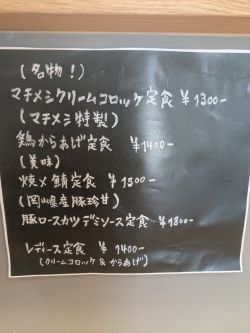 (名物!)
マチメシクリームコロッケ定食 ¥1300-
(マチメシ特製)
鶏からあげ定食 ¥1400-
(美味)
焼〆鯖定食 ¥1500-
(岡山県産豚珍甘)
豚ロースカツデミソース定食 ¥1800-
レディース定食 ¥1400-
(クリームコロッケ&からあげ)